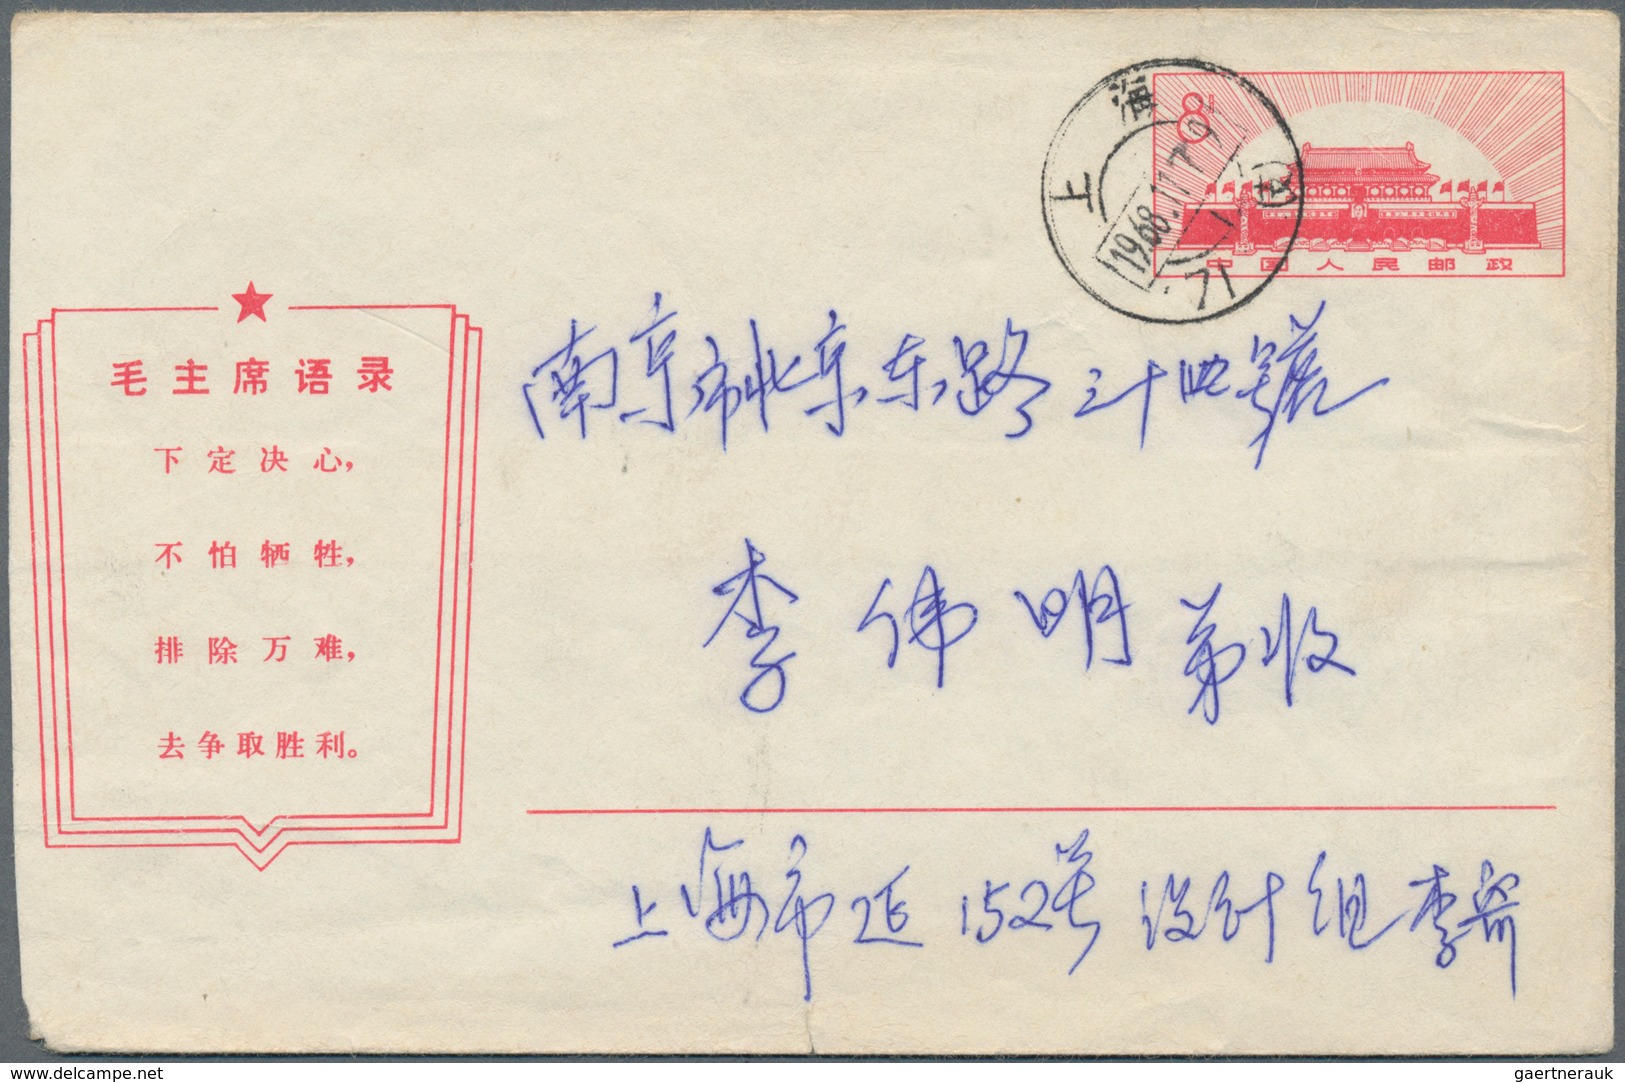 8
中国人民邮政
上海
1968.11.
71
毛主席语录
下定决心，
不怕牺牲，
排除万难，
去争取胜利。
南京市北京东路三十四號
李伟明弟收
上海市延152号设计组李
delcampe.net
gaertnerauk